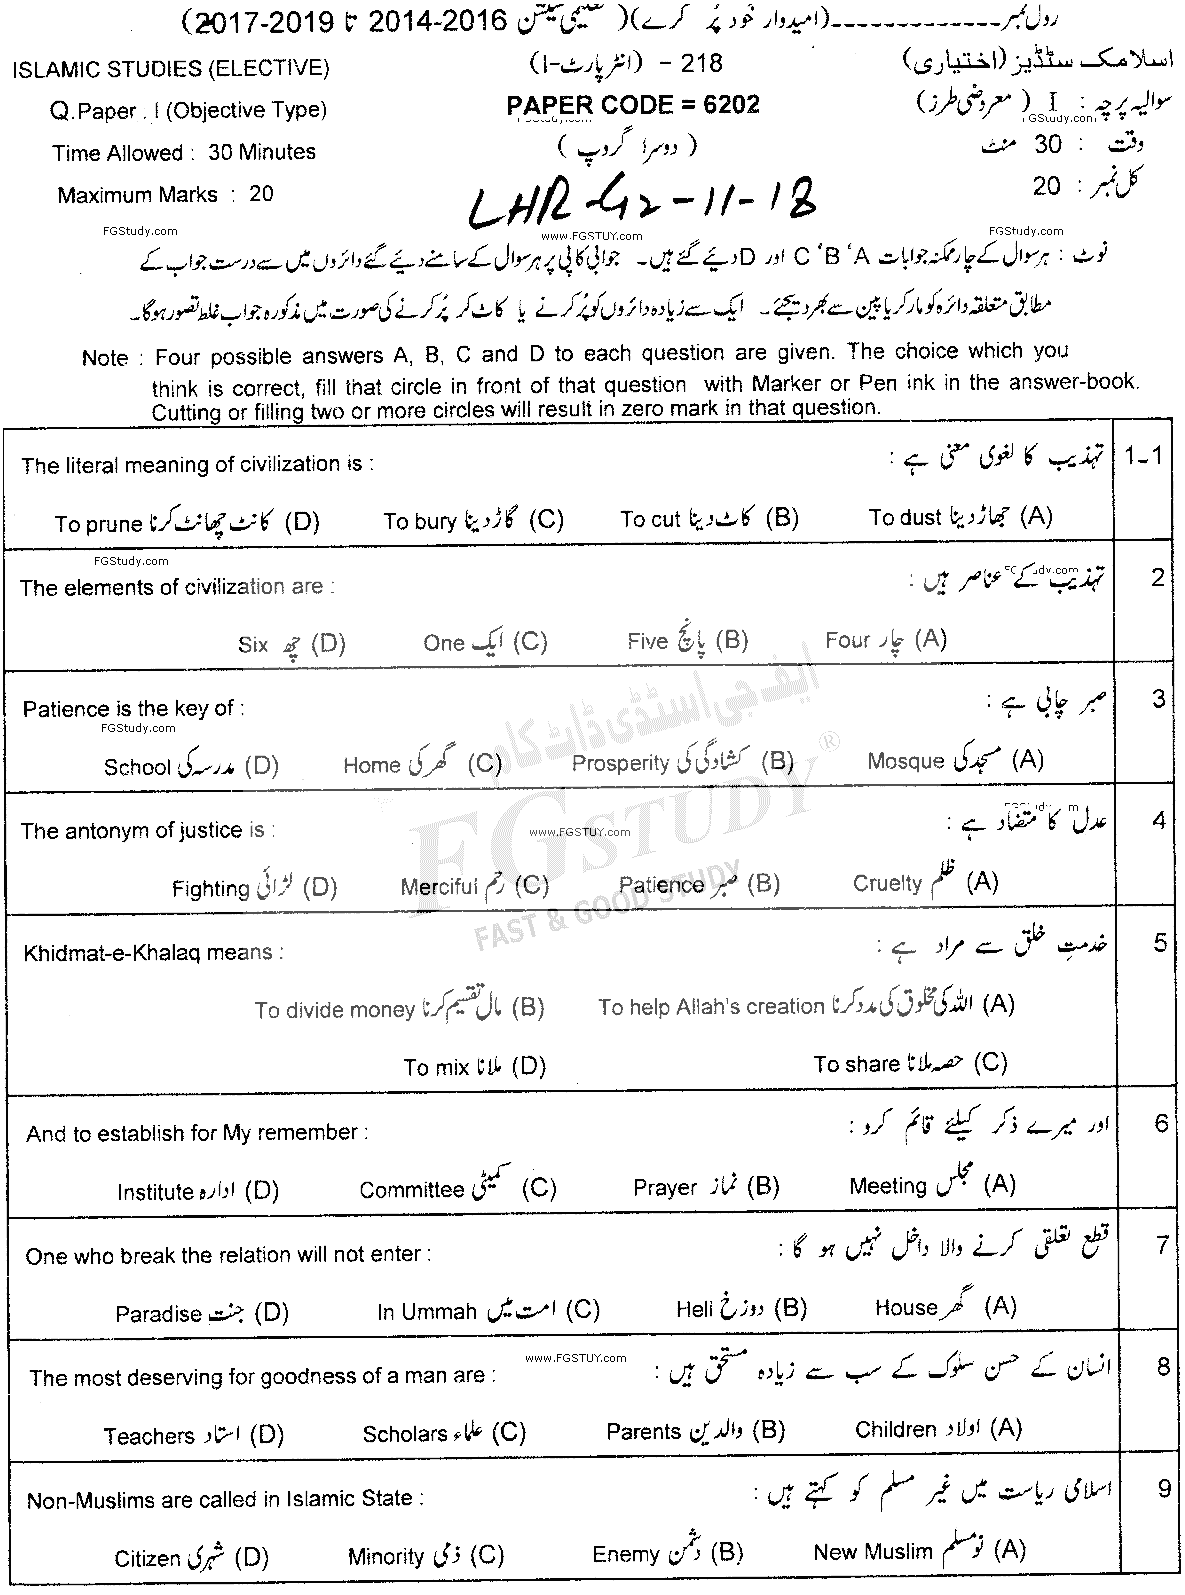 رول نمبر-------------(امیدوار خود پُر کرے)(تعلیمی سیشن 2016-2014 تا 2019-2017)
ISLAMIC STUDIES (ELECTIVE) 218 - (انٹر پارٹ-I) اسلامک سٹڈیز (اختیاری)
Q.Paper : I (Objective Type) PAPER CODE = 6202 سوالیہ پرچہ : I (معروضی طرز)
FGStudy.com FGStudy.com
Time Allowed : 30 Minutes (دوسرا گروپ) وقت : 30 منٹ
Maximum Marks : 20 کل نمبر : 20
LHR-G2-11-18
FGStudy.com www.FGSTUY.com FGStudy.com
نوٹ : ہر سوال کے چار ممکنہ جوابات C ، B ، A اور D دیئے گئے ہیں۔ جوابی کاپی پر ہر سوال کے سامنے دیئے گئے دائروں میں سے درست جواب کے
مطابق متعلقہ دائرہ کو مارکر یا پین سے بھر دیجئے۔ ایک سے زیادہ دائروں کو پُر کرنے یا کاٹ کر پُر کرنے کی صورت میں مذکورہ جواب غلط تصور ہوگا۔
Note : Four possible answers A, B, C and D to each question are given. The choice which you
think is correct, fill that circle in front of that question with Marker or Pen ink in the answer-book.
Cutting or filling two or more circles will result in zero mark in that question.
The literal meaning of civilization is : تہذیب کا لغوی معنی ہے : 1-1
To prune کانٹ چھانٹ کرنا (D) To bury گاڑ دینا (C) To cut کاٹ دینا (B) To dust جھاڑ دینا (A)
FGStudy.com
The elements of civilization are : تہذیب کے عناصر ہیں : 2
Six چھ (D) One ایک (C) Five پانچ (B) Four چار (A)
Patience is the key of : صبر چابی ہے : 3
FGStudy.com
School مدرسہ کی (D) Home گھر کی (C) Prosperity کشادگی کی (B) Mosque مسجد کی (A)
ایف جی اسٹڈی ڈاٹ کام
FG STUDY ®
FAST & GOOD STUDY
The antonym of justice is : عدل کا متضاد ہے : 4
www.FGSTUY.com
Fighting لڑائی (D) Merciful رحم (C) Patience صبر (B) Cruelty ظلم (A)
Khidmat-e-Khalaq means : خدمتِ خلق سے مراد ہے : 5
To divide money مال تقسیم کرنا (B) To help Allah's creation اللہ کی مخلوق کی مدد کرنا (A)
To mix ملانا (D) To share حصہ ملانا (C)
And to establish for My remember : اور میرے ذکر کیلئے قائم کرو : 6
Institute ادارہ (D) Committee کمیٹی (C) Prayer نماز (B) Meeting مجلس (A)
One who break the relation will not enter : قطع تعلقی کرنے والا داخل نہیں ہو گا : 7
Paradise جنت (D) In Ummah امت میں (C) Hell دوزخ (B) House گھر (A)
www.FGSTUY.com
The most deserving for goodness of a man are : انسان کے حسن سلوک کے سب سے زیادہ مستحق ہیں : 8
Teachers استاد (D) Scholars علماء (C) Parents والدین (B) Children اولاد (A)
Non-Muslims are called in Islamic State : اسلامی ریاست میں غیر مسلم کو کہتے ہیں : 9
Citizen شہری (D) Minority ذمی (C) Enemy دشمن (B) New Muslim نو مسلم (A)